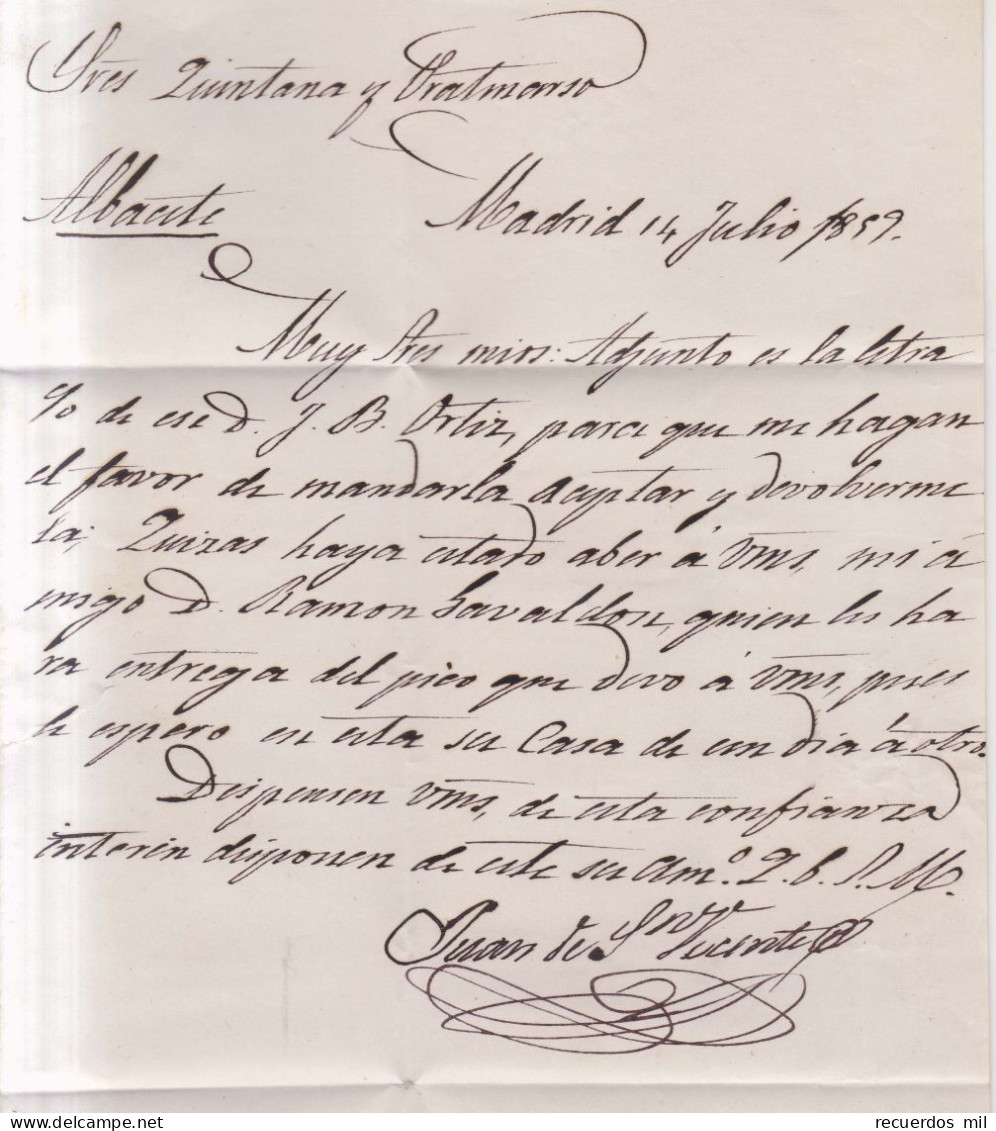 Sres Quintana y Pratmarso
Albacete Madrid 14 Julio 1859.
Muy Sres mios: Adjunto es la letra
c/o de ese D. J. B. Ortiz, para que me hagan
el favor de mandarla aceptar y devolverme
la; Quizas haya estado aber á Vms, mi a
migo D. Ramon Gavaldon, quien les ha
ra entrega del pico que devo á Vms, pues
le espero en esta su Casa de un dia á otro.
Dispensen Vms, de esta confianza
interin disponen de este su am.º Q. b. S. M.
Juan de Sn Vicente
recuerdos mil